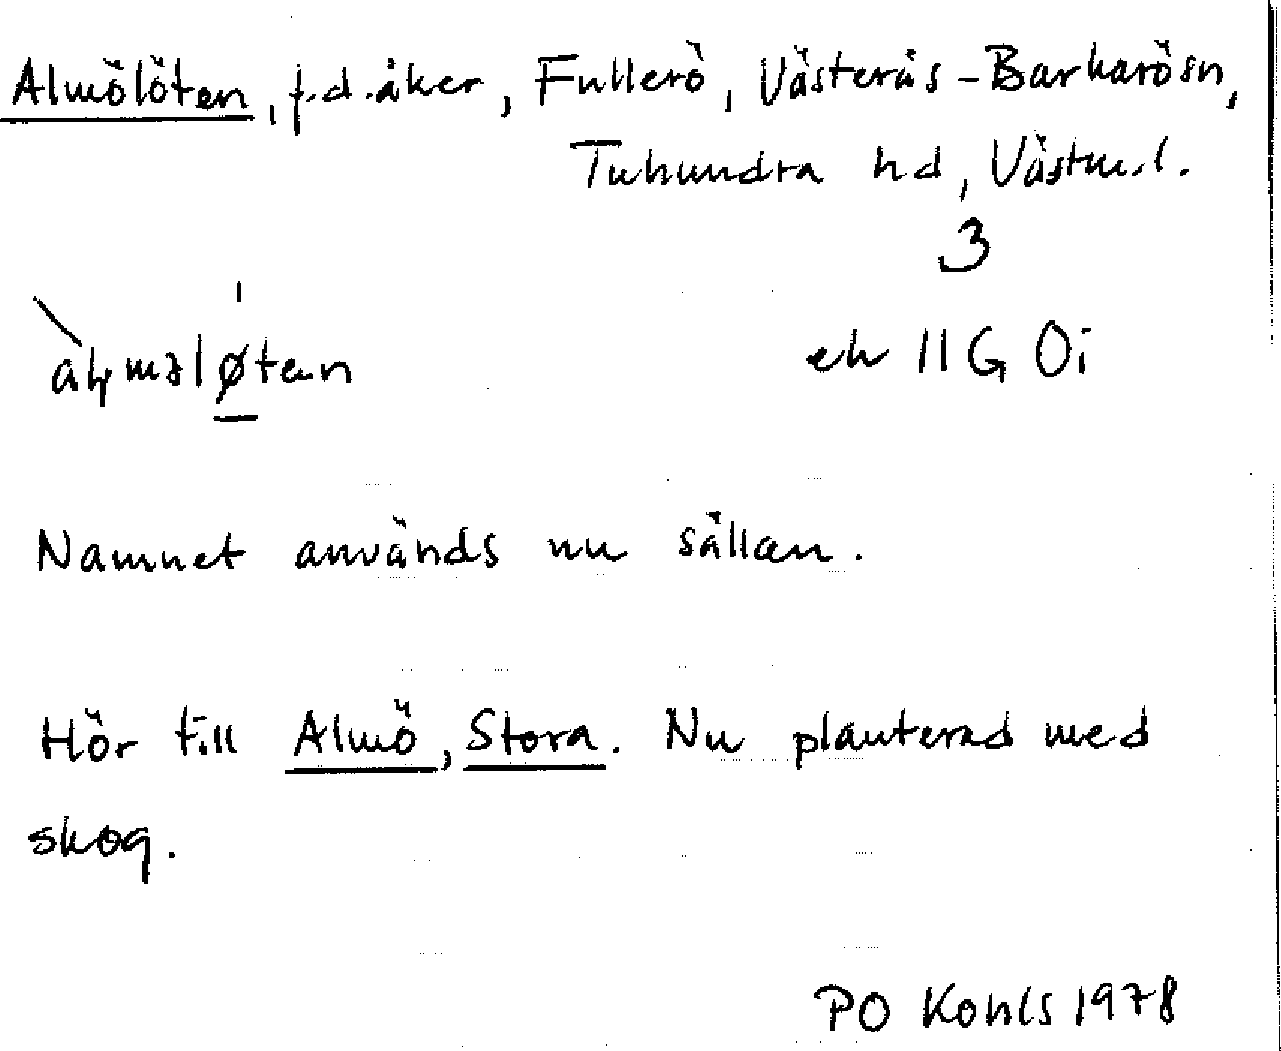 Almölöten, f.d. åker, Fullerö, Västerås-Barkarösn,
Tuhundra hd, Västm.l.
3
ek 11G 0i
Namnet används nu sällan.
Hör till Almö, Stora. Nu planterad med
skog.
PO Kohls 1978